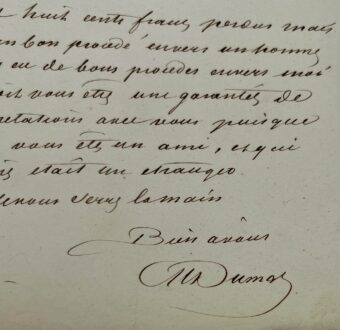 huit cents francs perdus mais
un bon procédé envers un homme
eu de bons procédés envers moi
vous êtes une garantie de
relations avec vous puisque
vous êtes un ami, et qui
était un étranger
vous serre la main
Bien à vous
ADumas